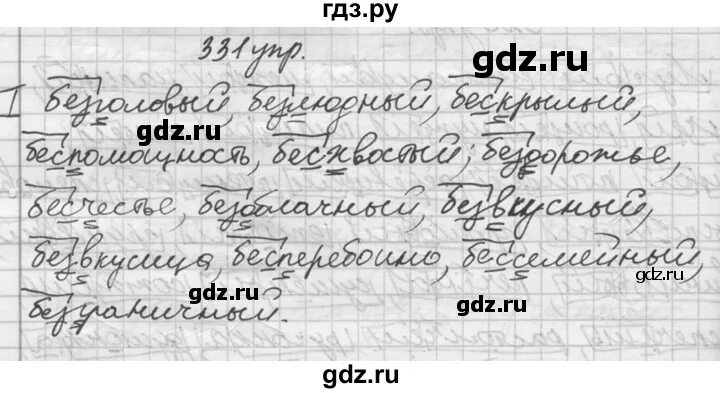 гдз.ру
331 упр.
gdz.ru
I безголовый, безлюдный, бескрылый,
gdz.ru
беспомощность, бесхвостый; бездорожье,
бесчестье, безоблачный, безвкусный,
безвкусица, бесперебойно, бессемейный,
gdz.ru
gdz.ru
gdz.ru
безграничный.
gdz.ru